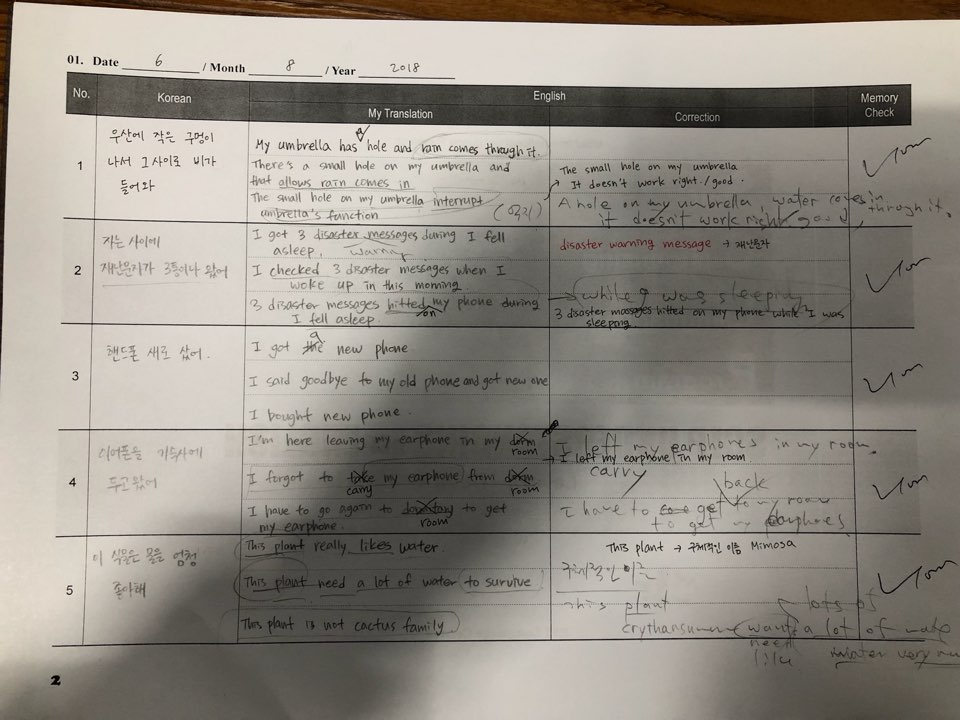 01. Date 6 / Month 8 / Year 2018
No.
Korean
English
My Translation
Correction
Memory Check
1
우산에 작은 구멍이
나서 그 사이로 비가
들어와
a
My umbrella has hole and rain comes through it.
There's a small hole on my umbrella and
that allows rain comes in
The small hole on my umbrella interrupt
umbrella's function
The small hole on my umbrella
It doesn't work right / good
A hole on my umbrella, water comes in
through it.
it doesn't work right good
2
자는 사이에
재난문자가 3통이나 왔어
I got 3 disaster messages during I fell
asleep.
warning
I checked 3 disaster messages when I
woke up in this morning.
3 disaster messages hitted my phone during
on
I fell asleep.
disaster warning message → 재난문자
while I was sleeping
3 disaster massages hitted on my phone while I was
sleeping
3
핸드폰 새로 샀어.
a
I got the new phone
I said goodbye to my old phone and got new one
I bought new phone.
4
이어폰을 기숙사에
두고 왔어
I'm here leaving my earphone in my dorm
room
I forgot to take my earphone from dorm
carry room
I have to go again to dormitory to get
room
my earphone.
I left my earphones in my room.
→ I left my earphone in my room
carry
back
I have to go get to my room
to get my earphones
5
이 식물은 물을 엄청
좋아해
This plant really likes water.
This plant need a lot of water to survive
This plant is not cactus family
This plant → 구체적인 이름 Mimosa
구체적인 이름
This plant
lots of
want a lot of
need
like
water very
2